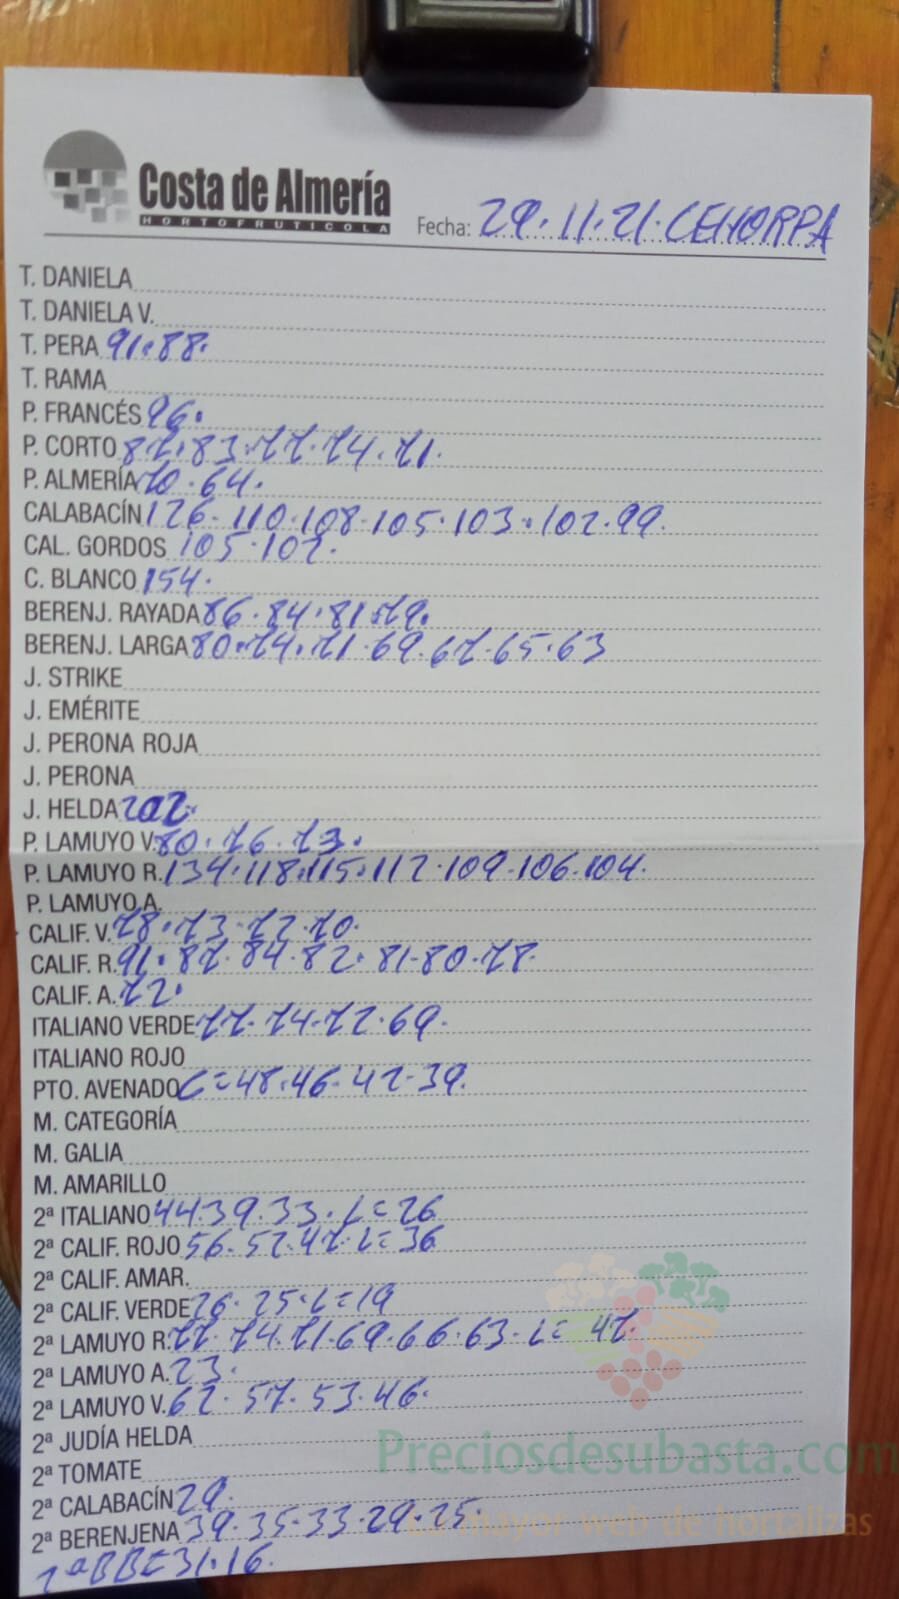 Costa de Almería
HORTOFRUTICOLA
Fecha: 29.11.21.CEHORPA
T. DANIELA
T. DANIELA V.
T. PERA 91.88.
T. RAMA
P. FRANCÉS 96.
P. CORTO 87.83.77.74.71.
P. ALMERÍA 70.64.
CALABACÍN 126.110.108.105.103.102.99.
CAL. GORDOS 105.102.
C. BLANCO 154.
BERENJ. RAYADA 86.84.81.79.
BERENJ. LARGA 80.74.71.69.67.65.63
J. STRIKE
J. EMÉRITE
J. PERONA ROJA
J. PERONA
J. HELDA 202.
P. LAMUYO V. 80.76.73.
P. LAMUYO R. 134.118.115.112.109.106.104.
P. LAMUYO A.
CALIF. V. 78.73.72.70.
CALIF. R. 91.87.84.82.81.80.78.
CALIF. A. 72.
ITALIANO VERDE 77.74.72.69.
ITALIANO ROJO
PTO. AVENADO C=48.46.42.39.
M. CATEGORÍA
M. GALIA
M. AMARILLO
2ª ITALIANO 44.39.33.L=26
2ª CALIF. ROJO 56.52.47.L=36
2ª CALIF. AMAR.
2ª CALIF. VERDE 26.25.L=19
2ª LAMUYO R. 77.74.71.69.66.63.L=47.
2ª LAMUYO A. 23.
2ª LAMUYO V. 62.57.53.46.
2ª JUDÍA HELDA
Preciosdesubasta.com
2ª TOMATE
2ª CALABACÍN 29.
2ª BERENJENA 39.35.33.29.25.
La mayor web de hortalizas
2ªBB=31.16.